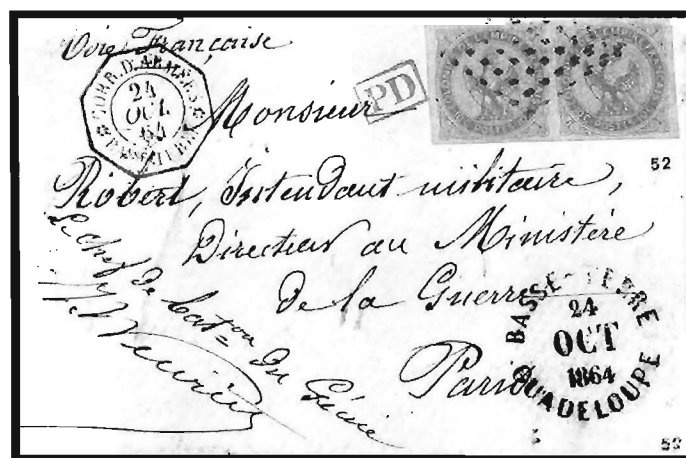 Voie Française
CORR. D. ARMÉES
24
OCT.
64
PD
52
Monsieur
Robert, Intendant militaire,
Directeur au Ministère
de la Guerre
Paris
Le chef de baton du Génie
BASSE-TERRE
24
OCT
1864
GUADELOUPE
52